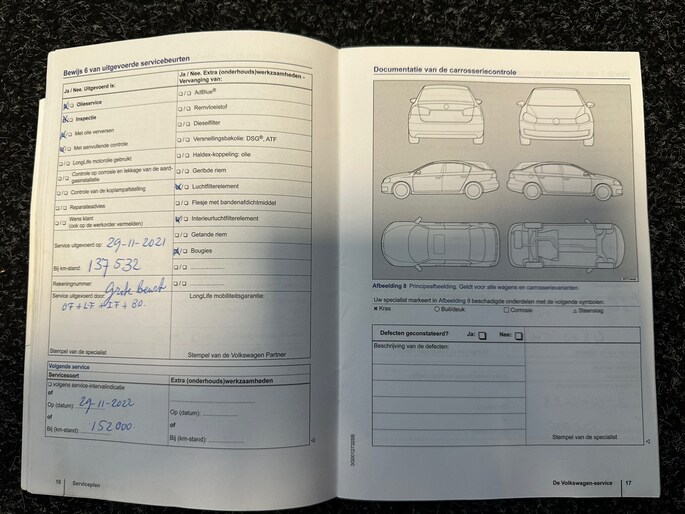 Bewijs 6 van uitgevoerde servicebeurten
Ja / Nee. Uitgevoerd is:
❑/❑ Olieservice
❑/❑ Inspectie
❑/❑ Met olie verversen
❑/❑ Met aanvullende controle
❑/❑ LongLife motorolie gebruikt
❑/❑ Controle op corrosie en lekkage van de aard-
gasinstallatie
❑/❑ Controle van de koplampafstelling
❑/❑ Reparatieadvies
❑/❑ Wens klant
(ook op de werkorder vermelden)
Service uitgevoerd op: 29-11-2021
Bij km-stand: 137532
Rekeningnummer: Grote beurt
Service uitgevoerd door:
OF + LF + IF + BO.
Stempel van de specialist
Ja / Nee. Extra (onderhouds)werkzaamheden –
Vervanging van:
❑/❑ AdBlue®
❑/❑ Remvloeistof
❑/❑ Dieselfilter
❑/❑ Versnellingsbakolie: DSG®, ATF
❑/❑ Haldex-koppeling: olie
❑/❑ Geribde riem
❑/❑ Luchtfilterelement
❑/❑ Flesje met bandenafdichtmiddel
❑/❑ Interieurluchtfilterelement
❑/❑ Getande riem
❑/❑ Bougies
❑/❑
❑/❑
LongLife mobiliteitsgarantie:
Stempel van de Volkswagen Partner
Volgende service
Servicesoort
❑ volgens service-intervalindicatie
of
Op (datum): 29-11-2022
of
Bij (km-stand): 152000
Extra (onderhouds)werkzaamheden
Op (datum):
of
Bij (km-stand):
16 Serviceplan
Documentatie van de carrosseriecontrole
Afbeelding 8 Principeafbeelding. Geldt voor alle wagens en carrosserievarianten
Uw specialist markeert in Afbeelding 8 beschadigde onderdelen met de volgende symbolen:
✕ Kras ○ Buil/deuk ❑ Corrosie △ Steenslag
Defecten geconstateerd? Ja: ❑ Nee: ❑
Beschrijving van de defecten:
Stempel van de specialist
De Volkswagen-service 17